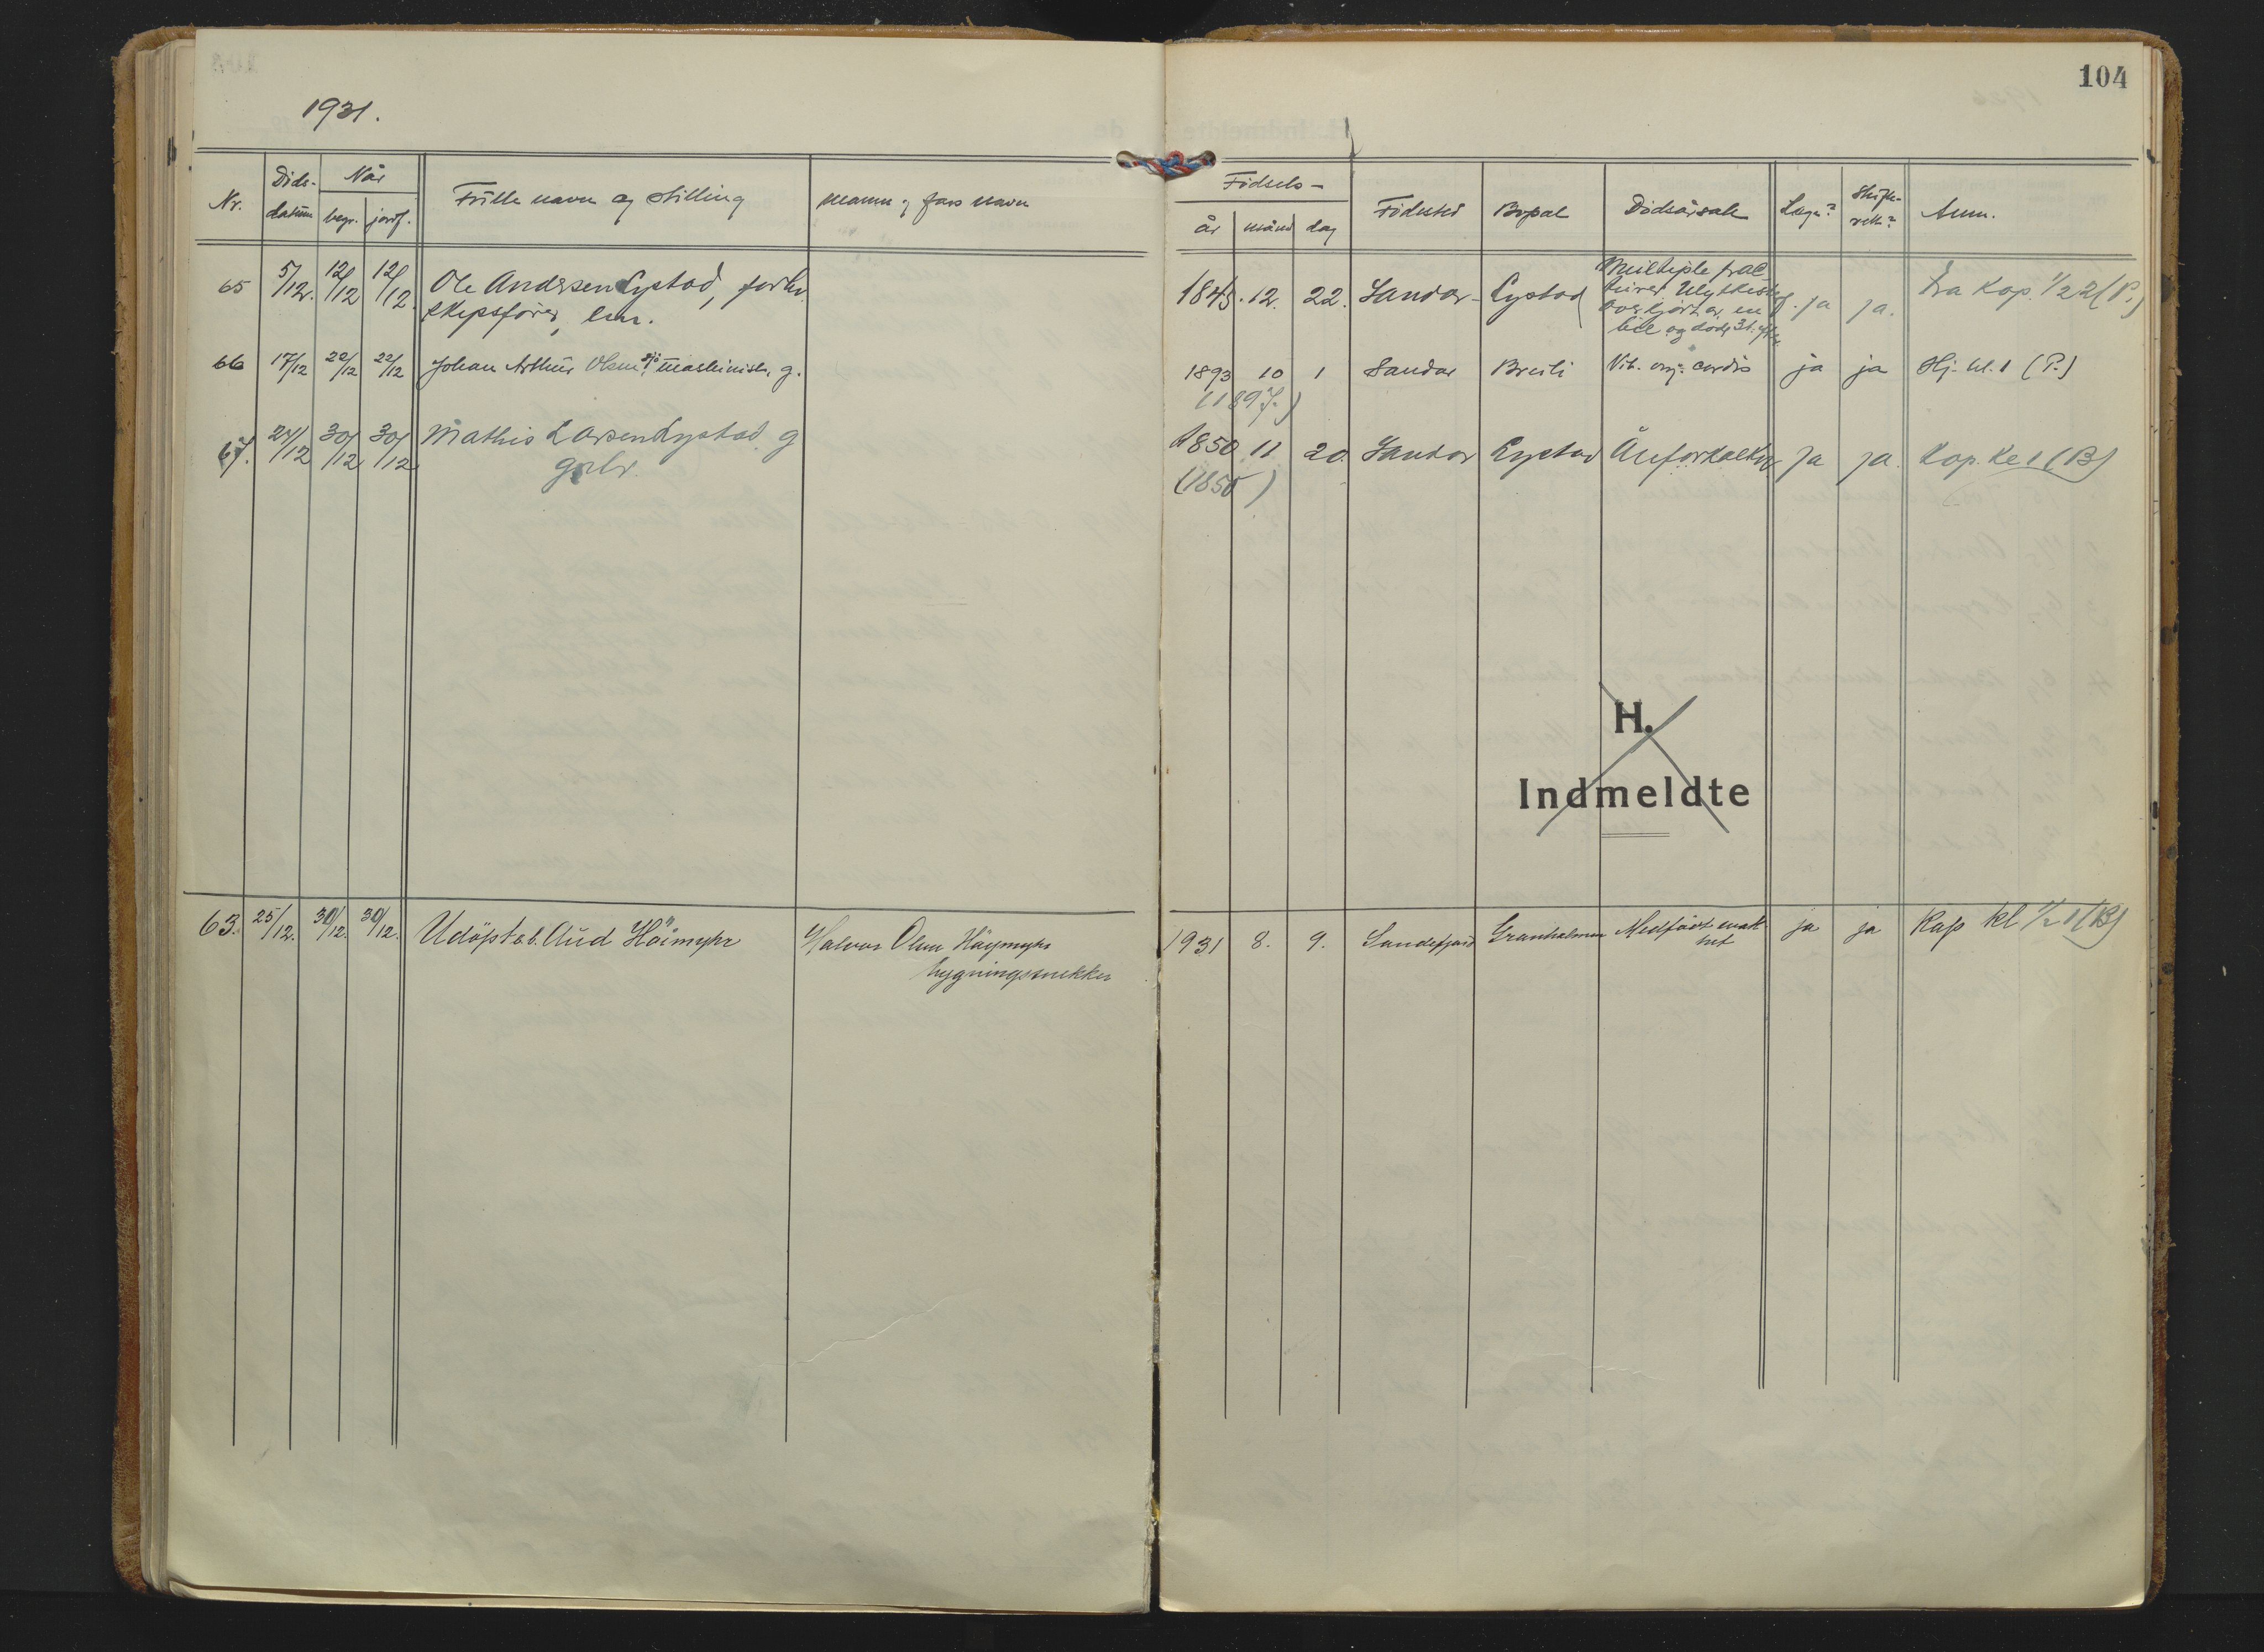 1931.
104
Nr.
Döds-
datum
Når
begr.
jordf.
Fulle navn og stilling
Mann og fars navn
Fødsels-
år
måned
dag
Födested
Bopæl
Dödsårsak
Læge?
Skifte-
rett?
Anm.
65 5/12. 12/12 12/12. Ole Andersen Lystad, forhv.
skipsförer, em.
1845. 12. 22. Sandar Lystad
Multiple frac-
turer. Ulykkestilf.
overkjørt av en
bil og døde 3 t. efter
ja ja. Fra Kap. 1/2 2 (P.)
66 17/12 22/12 22/12 Johan Arthur Olsen, maskinist, g.
1893 10 1 Sandar Breili Vit. org. cordis ja ja Hj. kl. 1 (P.)
(1897.)
67. 24/12 30/12 30/12 Mathis Larsen Lystad g
gårdbr.
1850 11 20. Sandar Lystad Åreforkalkn. ja ja. Kap. kl 1 (B)
(1855)
H.
Indmeldte
63. 25/12. 30/12. 30/12. Udöpt e.b. Aud Höimyhr
Halvor Olsen Höymyhr
bygningssnekker
1931 8. 9. Sandefjord Granholmen Medfødt svak-
het
ja ja Kap kl 1/2 1 (B)